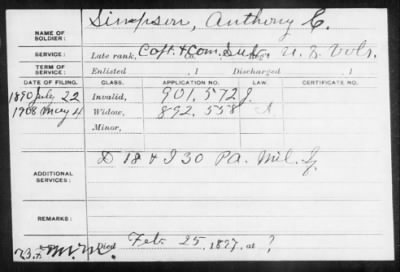 NAME OF SOLDIER: Simpson, Anthony C.
SERVICE: Late rank, Capt. & Com. Sub. Co. , Reg't U.S. Vols.
TERM OF SERVICE: Enlisted , 1 Discharged , 1
DATE OF FILING. CLASS. APPLICATION NO. LAW. CERTIFICATE NO.
1890 July 22 Invalid, 901.572 J.
1908 May 4 Widow, 892.558
Minor,
ADDITIONAL SERVICES: D 18 & I 30 Pa. Mil. Inf.
REMARKS:
Died Feb. 25, 1897, at ?